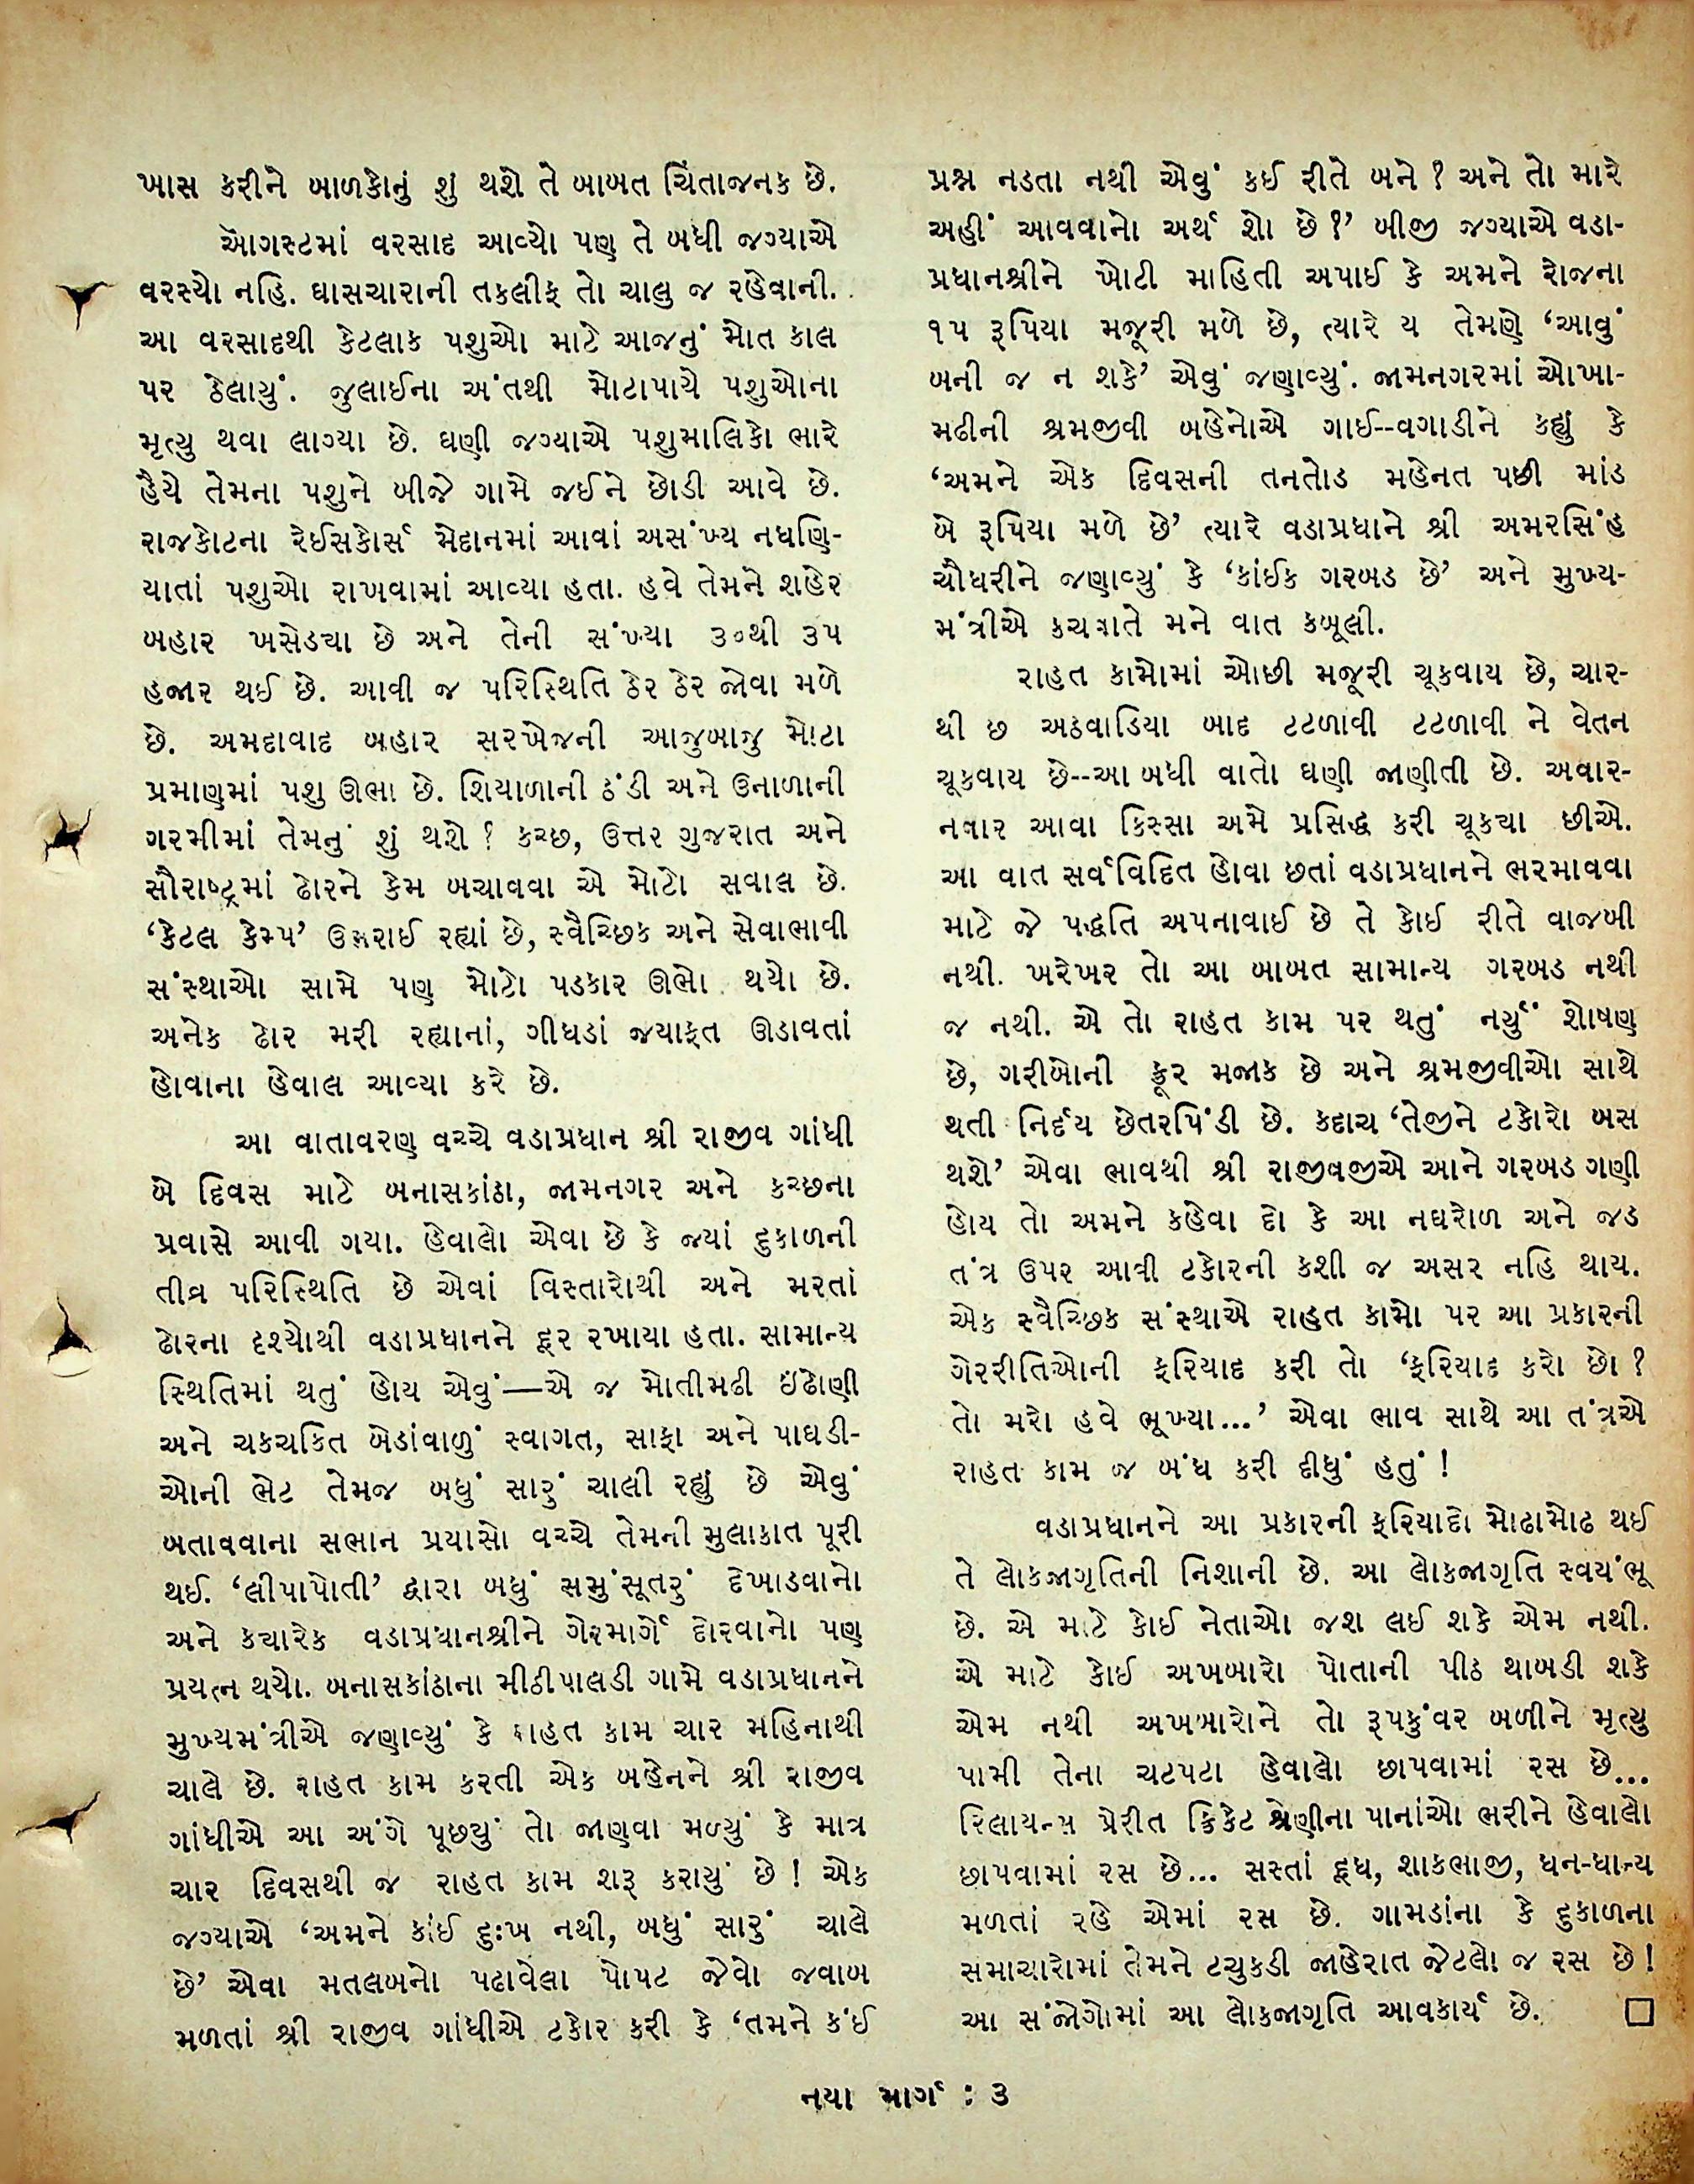 ખાસ કરીને બાળકોનું શું થશે તે બાબત ચિંતાજનક છે.
ઑગસ્ટમાં વરસાદ આવ્યો પણ તે બધી જગ્યાએ
વરસ્યો નહિ. ઘાસચારાની તકલીફ તો ચાલુ જ રહેવાની.
આ વરસાદથી કેટલાક પશુઓ માટે આજનું મોત કાલ
પર ઠેલાયું. જુલાઈના અંતથી મોટાપાયે પશુઓના
મૃત્યુ થવા લાગ્યા છે. ઘણી જગ્યાએ પશુમાલિકો ભારે
હૈયે તેમના પશુને બીજે ગામે જઈને છોડી આવે છે.
રાજકોટના રેઈસકોર્સ મેદાનમાં આવાં અસંખ્ય નધણિ-
યાતાં પશુઓ રાખવામાં આવ્યા હતા. હવે તેમને શહેર
બહાર ખસેડ્યા છે અને તેની સંખ્યા ૩૦થી ૩૫
હજાર થઈ છે. આવી જ પરિસ્થિતિ ઠેર ઠેર જોવા મળે
છે. અમદાવાદ બહાર સરખેજની આજુબાજુ મોટા
પ્રમાણમાં પશુ ઊભા છે. શિયાળાની ઠંડી અને ઉનાળાની
ગરમીમાં તેમનું શું થશે ? કચ્છ, ઉત્તર ગુજરાત અને
સૌરાષ્ટ્રમાં ઢોરને કેમ બચાવવા એ મોટો સવાલ છે.
‘કેટલ કેમ્પ’ ઉભરાઈ રહ્યાં છે, સ્વૈચ્છિક અને સેવાભાવી
સંસ્થાઓ સામે પણ મોટો પડકાર ઊભો થયો છે.
અનેક ઢોર મરી રહ્યાનાં, ગીધડાં જયાફત ઊડાવતાં
હોવાના હેવાલ આવ્યા કરે છે.
આ વાતાવરણ વચ્ચે વડાપ્રધાન શ્રી રાજીવ ગાંધી
બે દિવસ માટે બનાસકાંઠા, જામનગર અને કચ્છના
પ્રવાસે આવી ગયા. હેવાલો એવા છે કે જ્યાં દુકાળની
તીવ્ર પરિસ્થિતિ છે એવાં વિસ્તારોથી અને મરતાં
ઢોરના દૃશ્યોથી વડાપ્રધાનને દૂર રખાયા હતા. સામાન્ય
સ્થિતિમાં થતું હોય એવું—એ જ મોતીમઢી ઇંઢોણી
અને ચકચકિત બેડાંવાળું સ્વાગત, સાફા અને પાઘડી-
ઓની ભેટ તેમજ બધું સારું ચાલી રહ્યું છે એવું
બતાવવાના સભાન પ્રયાસો વચ્ચે તેમની મુલાકાત પૂરી
થઈ. ‘લીપાપોતી’ દ્વારા બધું સમુંસૂતરું દેખાડવાનો
અને ક્યારેક વડાપ્રધાનશ્રીને ગેરમાર્ગે દોરવાનો પણ
પ્રયત્ન થયો. બનાસકાંઠાના મીઠીપાલડી ગામે વડાપ્રધાનને
મુખ્યમંત્રીએ જણાવ્યું કે રાહત કામ ચાર મહિનાથી
ચાલે છે. રાહત કામ કરતી એક બહેનને શ્રી રાજીવ
ગાંધીએ આ અંગે પૂછયું તો જાણવા મળ્યું કે માત્ર
ચાર દિવસથી જ રાહત કામ શરૂ કરાયું છે ! એક
જગ્યાએ ‘અમને કાંઈ દુઃખ નથી, બધું સારું ચાલે
છે’ એવા મતલબનો પઢાવેલા પોપટ જેવો જવાબ
મળતાં શ્રી રાજીવ ગાંધીએ ટકોર કરી કે ‘તમને કંઈ
પ્રશ્ન નડતા નથી એવું કઈ રીતે બને ? અને તો મારે
અહીં આવવાનો અર્થ શો છે ?’ બીજી જગ્યાએ વડા-
પ્રધાનશ્રીને ખોટી માહિતી અપાઈ કે અમને રોજના
૧૫ રૂપિયા મજૂરી મળે છે, ત્યારે ય તેમણે ‘આવું
બની જ ન શકે’ એવું જણાવ્યું. જામનગરમાં ઓખા-
મઢીની શ્રમજીવી બહેનોએ ગાઈ--વગાડીને કહ્યું કે
‘અમને એક દિવસની તનતોડ મહેનત પછી માંડ
બે રૂપિયા મળે છે’ ત્યારે વડાપ્રધાને શ્રી અમરસિંહ
ચૌધરીને જણાવ્યું કે ‘કાંઈક ગરબડ છે’ અને મુખ્ય-
મંત્રીએ કચવાતે મને વાત કબૂલી.
રાહત કામોમાં ઓછી મજૂરી ચૂકવાય છે, ચાર-
થી છ અઠવાડિયા બાદ ટટળાવી ટટળાવી ને વેતન
ચૂકવાય છે--આ બધી વાતો ઘણી જાણીતી છે. અવાર-
નવાર આવા કિસ્સા અમે પ્રસિદ્ધ કરી ચૂક્યા છીએ.
આ વાત સર્વવિદિત હોવા છતાં વડાપ્રધાનને ભરમાવવા
માટે જે પદ્ધતિ અપનાવાઈ છે તે કોઈ રીતે વાજબી
નથી. ખરેખર તો આ બાબત સામાન્ય ગરબડ નથી
જ નથી. એ તો રાહત કામ પર થતું નર્યું શોષણ
છે, ગરીબોની ક્રૂર મજાક છે અને શ્રમજીવીઓ સાથે
થતી નિર્દય છેતરપિંડી છે. કદાચ ‘તેજીને ટકોરો બસ
થશે’ એવા ભાવથી શ્રી રાજીવજીએ આને ગરબડ ગણી
હોય તો અમને કહેવા દો કે આ નઘરોળ અને જડ
તંત્ર ઉપર આવી ટકોરની કશી જ અસર નહિ થાય.
એક સ્વૈચ્છિક સંસ્થાએ રાહત કામો પર આ પ્રકારની
ગેરરીતિઓની ફરિયાદ કરી તો ‘ફરિયાદ કરો છો ?
તો મરો હવે ભૂખ્યા...’ એવા ભાવ સાથે આ તંત્રએ
રાહત કામ જ બંધ કરી દીધું હતું !
વડાપ્રધાનને આ પ્રકારની ફરિયાદો મોઢામોઢ થઈ
તે લોકજાગૃતિની નિશાની છે. આ લોકજાગૃતિ સ્વયંભૂ
છે. એ માટે કોઈ નેતાઓ જશ લઈ શકે એમ નથી.
એ માટે કોઈ અખબારો પોતાની પીઠ થાબડી શકે
એમ નથી અખબારોને તો રૂપકુંવર બળીને મૃત્યુ
પામી તેના ચટપટા હેવાલો છાપવામાં રસ છે...
રિલાયન્સ પ્રેરીત ક્રિકેટ શ્રેણીના પાનાંઓ ભરીને હેવાલો
છાપવામાં રસ છે... સસ્તાં દૂધ, શાકભાજી, ધન-ધાન્ય
મળતાં રહે એમાં રસ છે. ગામડાંના કે દુકાળના
સમાચારોમાં તેમને ટચુકડી જાહેરાત જેટલો જ રસ છે !
આ સંજોગોમાં આ લોકજાગૃતિ આવકાર્ય છે. □
નયા માર્ગ : ૩